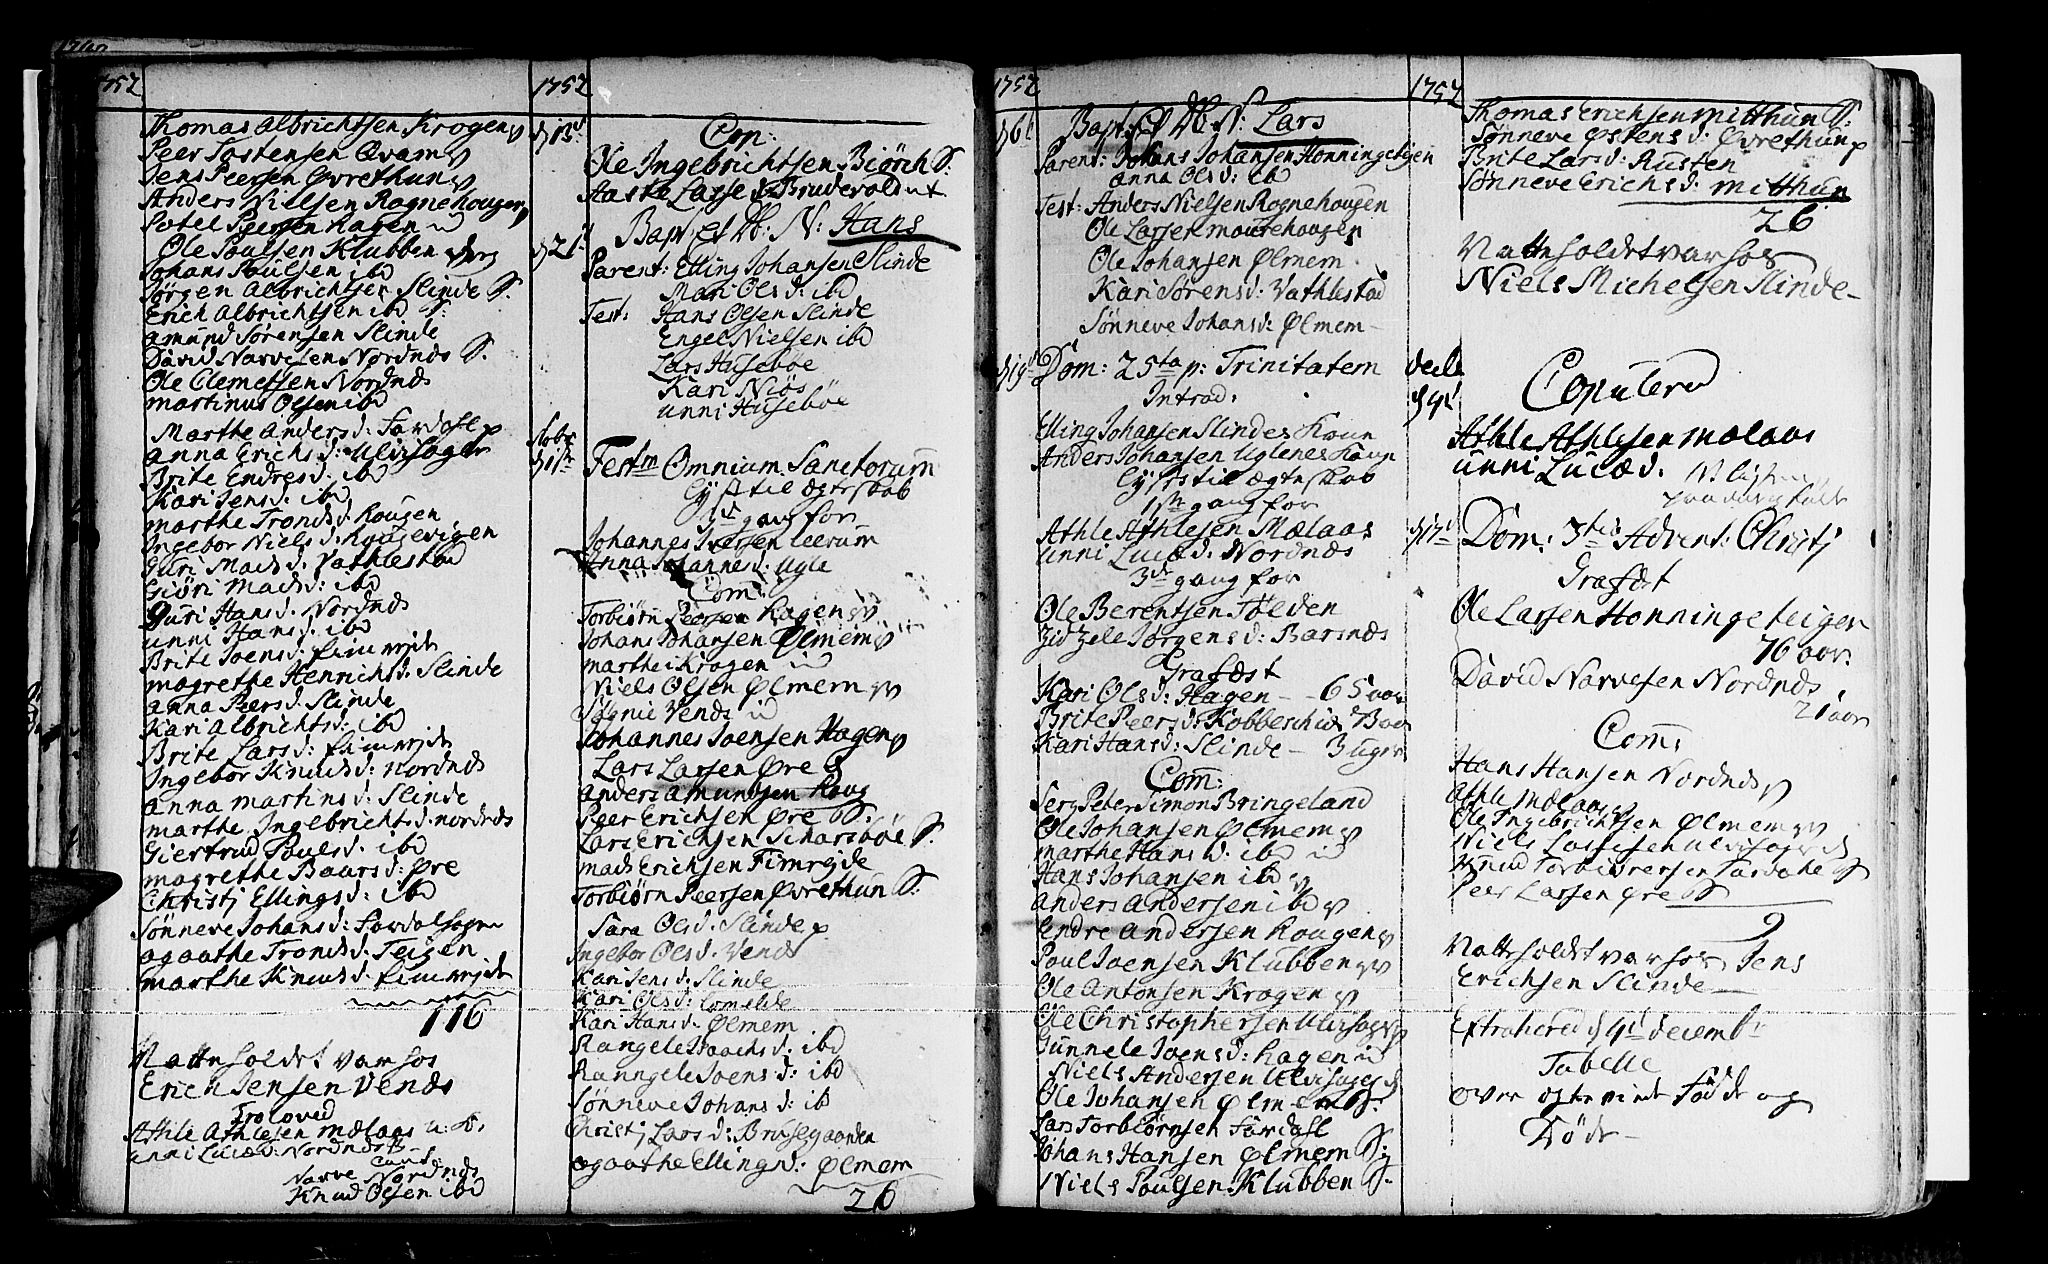 1752
Thomas Albrichtsen Krogen
Peer Tostensen Qvam
Jens Peersen Øvrethun
Anders Nielsen Rognehougen
Potel Peersen Hagen
Ole Poulsen Klubben
Johans Poulsen ibd
Jörgen Albrichtsen Slinde S.
Erich Albrichtsen ibd S:
Amund Sørensen Slinde
David Narvesen Nordnæs S.
Ole Clemetsen Nordnæs
Martinus Olsen ibd
Marthe Andersd:
Anna Erichsd: Ulvisager
Brite Endresd: ibd
Kari Jensd: ibd
Marthe Trondsd: Hougen
Ingebor Nielsd:
Guri Madsd: Vathlestad
Giöri Madsd: ibd
Guri Hansd: Nordnæs
Unni Hansd: ibd
Brite Joensd: Fimrejde
Magrethe Henrichsd: Slinde
Anna Peersd: Slinde
Kari Albrichtsd: ibd
Brite Larsd: Fimrejde
Ingebor Knudsd: Nordnæs
Anna Martinsd: Slinde
Marthe Ingebrichtsd: Nordnæs
Giertrud Poulsd: ibd
Magrethe Baarsd: Øre
Christj Ellingsd: ibd
Sønneve Johansd:
Agaathe Trondsd: Teigen
Marthe Knudsd: Fimrejde
116
Natteholdet var hos
Erich Jensen Vendæs
Troloved
Athle Athlesen Mælaas u. K.
Unni Lucæd: Nordnæs
Caut:
Narve Nordnæs
Knud Olsen ibd
1752
Cop:
Ole Ingebrichtsen Biörch S:
Aaste Larsd: Brudevold
d 21
Bapt: et N: Hans
Parent: Elling Johansen Slinde
Mari Olsd: ibd
Test: Hans Olsen Slinde
Engel Nielsen ibd
Lars Husebøe
Kari Niøs
Unni Husebøe
Fest: Omnium Sanctorum
Lyst til ægteskab
gang for
Johannes Iversen Leerum
Anna Johannesd: Ugle
Com:
Torbiörn Peersen Hagen
Johans Johansen Ølmem
Marthe i Krogen
Niels Olsen Ølmem
Vendæs
Johannes Joensen Hagen
Lars Larsen Øre S
Anders Amundsen Houg
Peer Erichsen Øre S.
Lars Erichsen Skarsböe S.
Mads Erichsen Fimrejde
Torbiørn Peersen Øvrethun S:
Sara Olsd: Slinde
Ingebor Olsd: Vendæs
Kari Jensd: Slinde
Kari Olsd: Lomelde
Kari Hansd: Ølmem
Rangele Isaachsd: ibd
Ranngele Joensd: ibd
Sønneve Johansd: ibd
Christj Larsd: Brusegaarden
Agaathe Ellingsd: Ølmem
26
1752
Bapt: et N: Lars
Parent: Johans Johansen Honningetegen
Anna Olsd: ibd
Test: Anders Nielsen Rognehougen
Ole Larsen
Ole Johansen Ølmem
Kari Sørensd: Vathlestad
Sønneve Johansd: Ølmem
Dom: 25ta p: Trinitatem
Introd:
Elling Johansen Slindes Koun
Anders Johansen Uglenes Koun
Lyst til ægteskab
1ste gang for
Athle Athlesen Mælaas
Unni Lucæd: Nordnæs
3de gang for
Ole Berentsen Tølden
Zidzele Jørgensd: Barsnæs
Grafæst
Kari Olsd: Hagen - 65 aar
Brite Peersd: Kobbeschied
Kari Hansd: Slinde - 3 uger
Com:
Serg Peter Simon Bringeland
Ole Johansen Ølmem
Marthe Hansd: ibd
Hans Johansen ibd
Anders Andersen ibd
Endre Andersen Hougen
Poul Joensen Klubben
Ole Antonsen Krogen
Ole Christophersen Ulvisager
Gunnele Joensd: Hagen
Niels Andersen Ulvisager
Ole Johansen Ølmem
Lars Torbiörnsen
Johans Hansen Ølmem S:
Niels Poulsen Klubben S.
1752
Thomas Erichsen Mitthun S:
Sønneve Østensd: Øvrethun
Brite Larsd: Rusten
Sønneve Erichsd: Mitthun
26
Natteholdet var hos
Niels Michelsen Slinde
Copulered
Athle Athlesen Mælaas
Unni Lucæd.
Dom: 3tia Advent: Christj
Grafæst
Ole Larsen Honningeteigen
76 aar
David Narvesen Nordnæs
21 aar
Com:
Hans Hansen Nordnæs
Athle Mælaas
Ole Ingebrichtsen Ølmem
Niels Lassesen Ulvisager
Knud Torbiörnsen
Peer Larsen Øre S
9
Natteholdet var hos Jens
Erichsen Slinde
Extrahered d 9d Decemb:
Tabelle
over ægteviede Fødde og
Döde